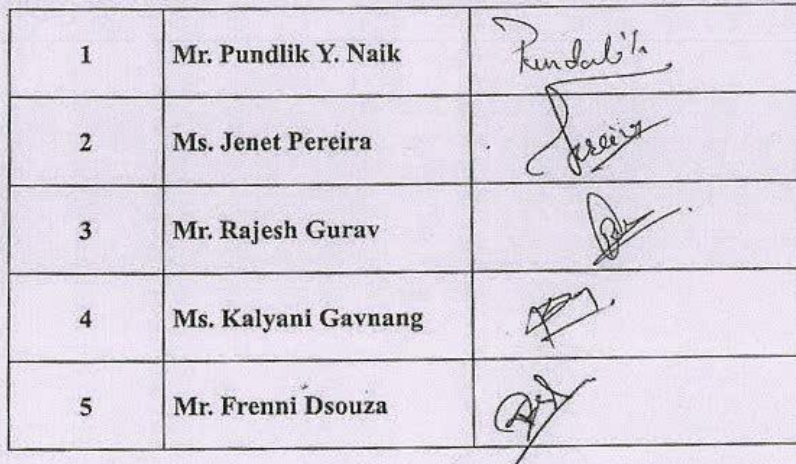 1 Mr. Pundlik Y. Naik Pundalik
2 Ms. Jenet Pereira Pereira
3 Mr. Rajesh Gurav
4 Ms. Kalyani Gavnang
5 Mr. Frenni Dsouza